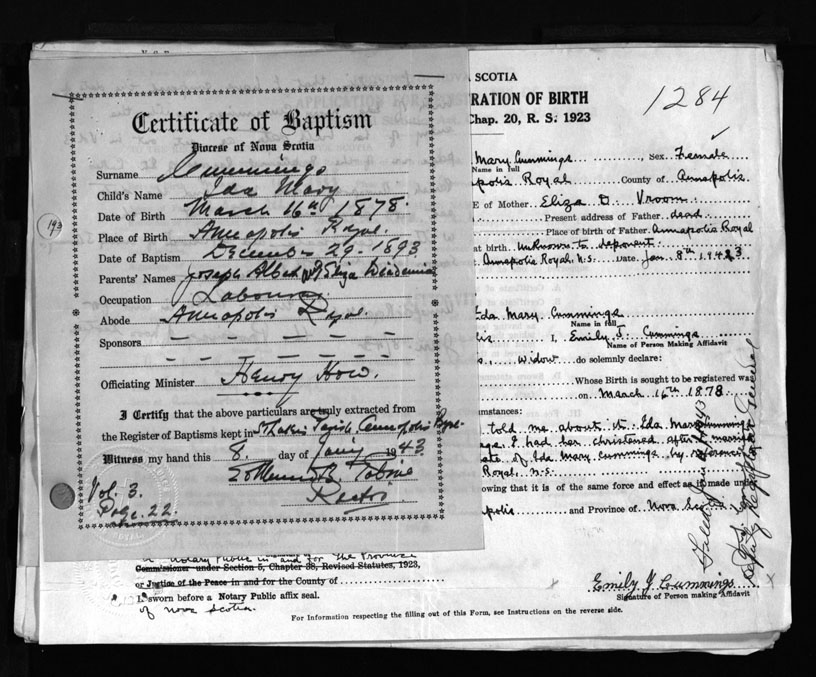 Certificate of Baptism
Diocese of Nova Scotia
Surname Cummings
Child's Name Ida Mary
Date of Birth March 16th 1878.
Place of Birth Annapolis Royal.
Date of Baptism December 29. 1893
Parents' Names Joseph Albert & Eliza
Occupation Labourer
Abode Annapolis Royal.
Sponsors
Officiating Minister Henry How.
I Certify that the above particulars are truly extracted from
the Register of Baptisms kept in St Lukes Parish Annapolis Royal.
Witness my hand this 8. day of 1943
Rector
Vol. 3.
Page. 22.
193
SCOTIA
RATION OF BIRTH
Chap. 20, R. S. 1923
1284
Mary Cummings, Sex Female
Name in full
polis Royal County of Annapolis
E of Mother Eliza D. Vroom
Present address of Father dead
Place of birth of Father Annapolis Royal
at birth unknown to deponent.
Annapolis Royal. N.S. Date Jan. 8th 1943
Ida Mary Cummings
Name in full
I, Emily J. Cummings
Name of Person Making Affidavit
Widow do solemnly declare:
Whose Birth is sought to be registered was
on March 16th 1878
umstances:
told me about it Ida Mary Cummings
ge. I had her christened after marriage
ate of Ida Mary Cummings by reference
Royal. N.S.
owing that it is of the same force and effect as if made under
polis and Province of Nova Scotia
Deputy Registrar General
Notary Public in and for the Province
Commissioner under Section 5, Chapter 38, Revised Statutes, 1923,
or Justice of the Peace in and for the County of
sworn before a Notary Public affix seal.
of Nova Scotia.
Emily J Cummings
Signature of Person making Affidavit
For Information respecting the filling out of this Form, see Instructions on the reverse side.